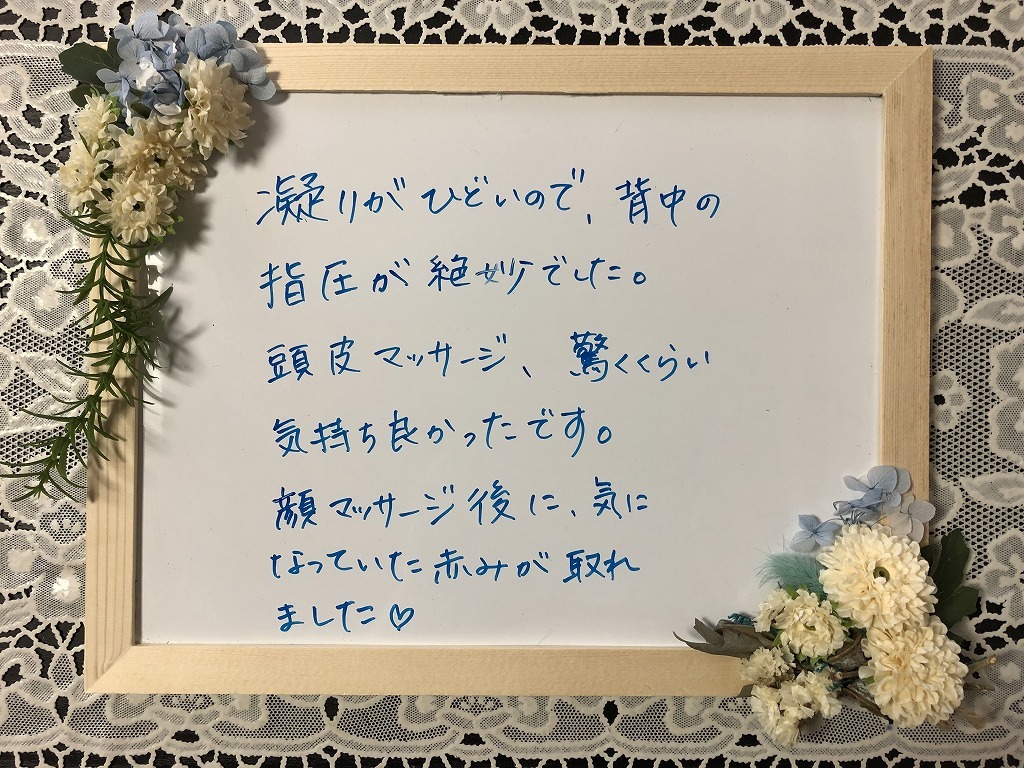 凝りがひどいので、背中の
指圧が絶妙でした。
頭皮マッサージ、驚くくらい
気持ち良かったです。
顔マッサージ後に、気に
なっていた赤みが取れ
ました♡